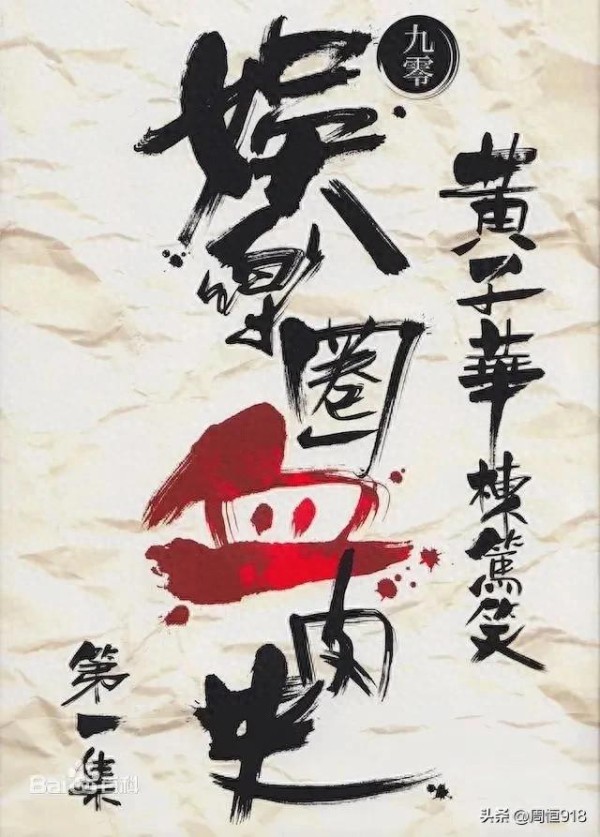 九零
黃子華棟篤笑
娛樂圈血肉史
第一集
Baidu百科
头条 @周恒918